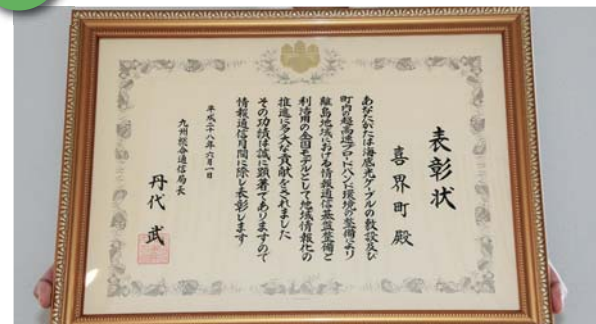 表彰状
喜界町 殿
あなたがたは海底光ケーブルの敷設及び
町内の超高速ブロードバンド環境の整備により
離島地域における情報通信基盤整備と
利活用の全国モデルとして地域情報化の
推進に多大な貢献をされました
その功績は誠に顕著でありますので
情報通信月間に際し表彰します
平成二十八年六月一日
九州総合通信局長
丹代 武